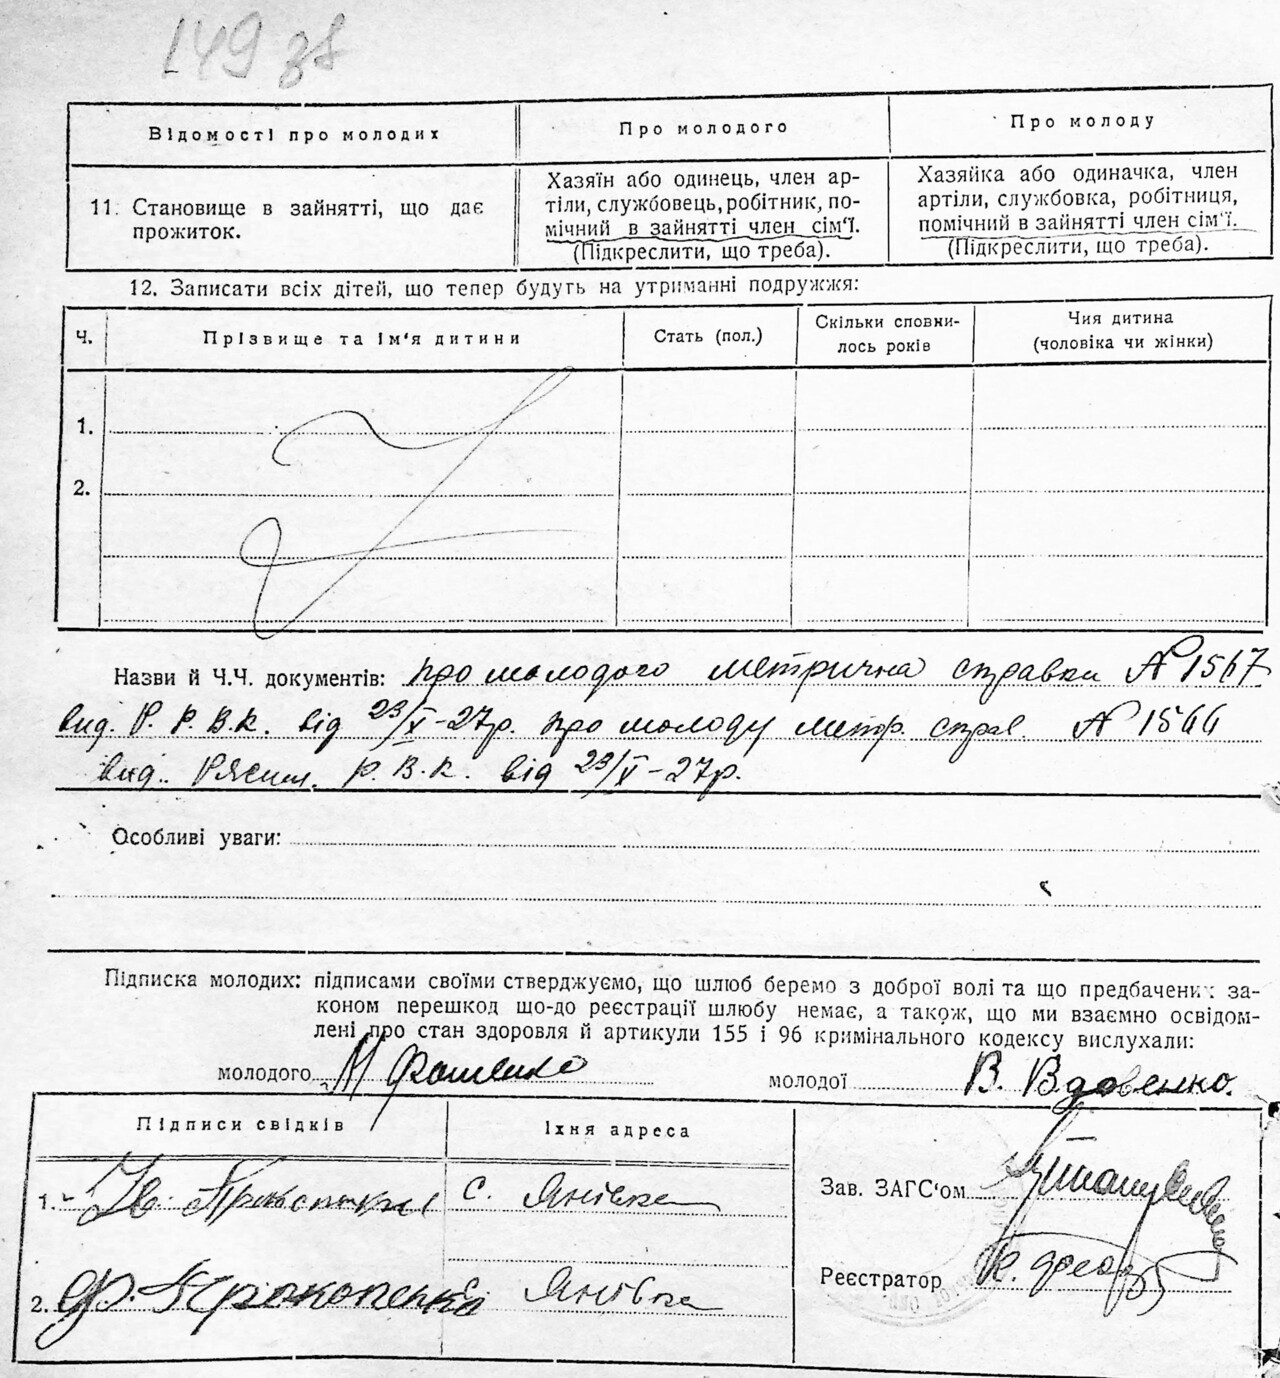 149 зв
Відомості про молодих
Про молодого
Про молоду
11. Становище в зайнятті, що дає
прожиток.
Хазяїн або одинець, член ар-
тіли, службовець, робітник, по-
мічний в зайнятті член сім'ї.
(Підкреслити, що треба).
Хазяйка або одиначка, член
артіли, службовка, робітниця,
помічний в зайнятті член сім'ї.
(Підкреслити, що треба).
12. Записати всіх дітей, що тепер будуть на утриманні подружжя:
Ч.
Прізвище та ім'я дитини
Стать (пол.)
Скільки сповни-
лось років
Чия дитина
(чоловіка чи жінки)
1.
2.
Назви й Ч.Ч. документів: про молодого метрична справка № 1567
вид. Р. Р.В.К. від 23/X-27р. про молоду метр. справ. № 1566
вид. Рясин. Р.В.К. від 23/X-27р.
Особливі уваги:
Підписка молодих: підписами своїми стверджуємо, що шлюб беремо з доброї волі та що предбачених за-
коном перешкод що-до реєстрації шлюбу немає, а також, що ми взаємно освідом-
лені про стан здоровля й артикули 155 і 96 кримінального кодексу вислухали:
молодого М Фошенко молодої В. Вдовенко.
Підписи свідків
Їхня адреса
1. Ів. с. Янівка
2. Ф. Прокопенко с. Янівка
Зав. ЗАГС'ом
Реєстратор К.